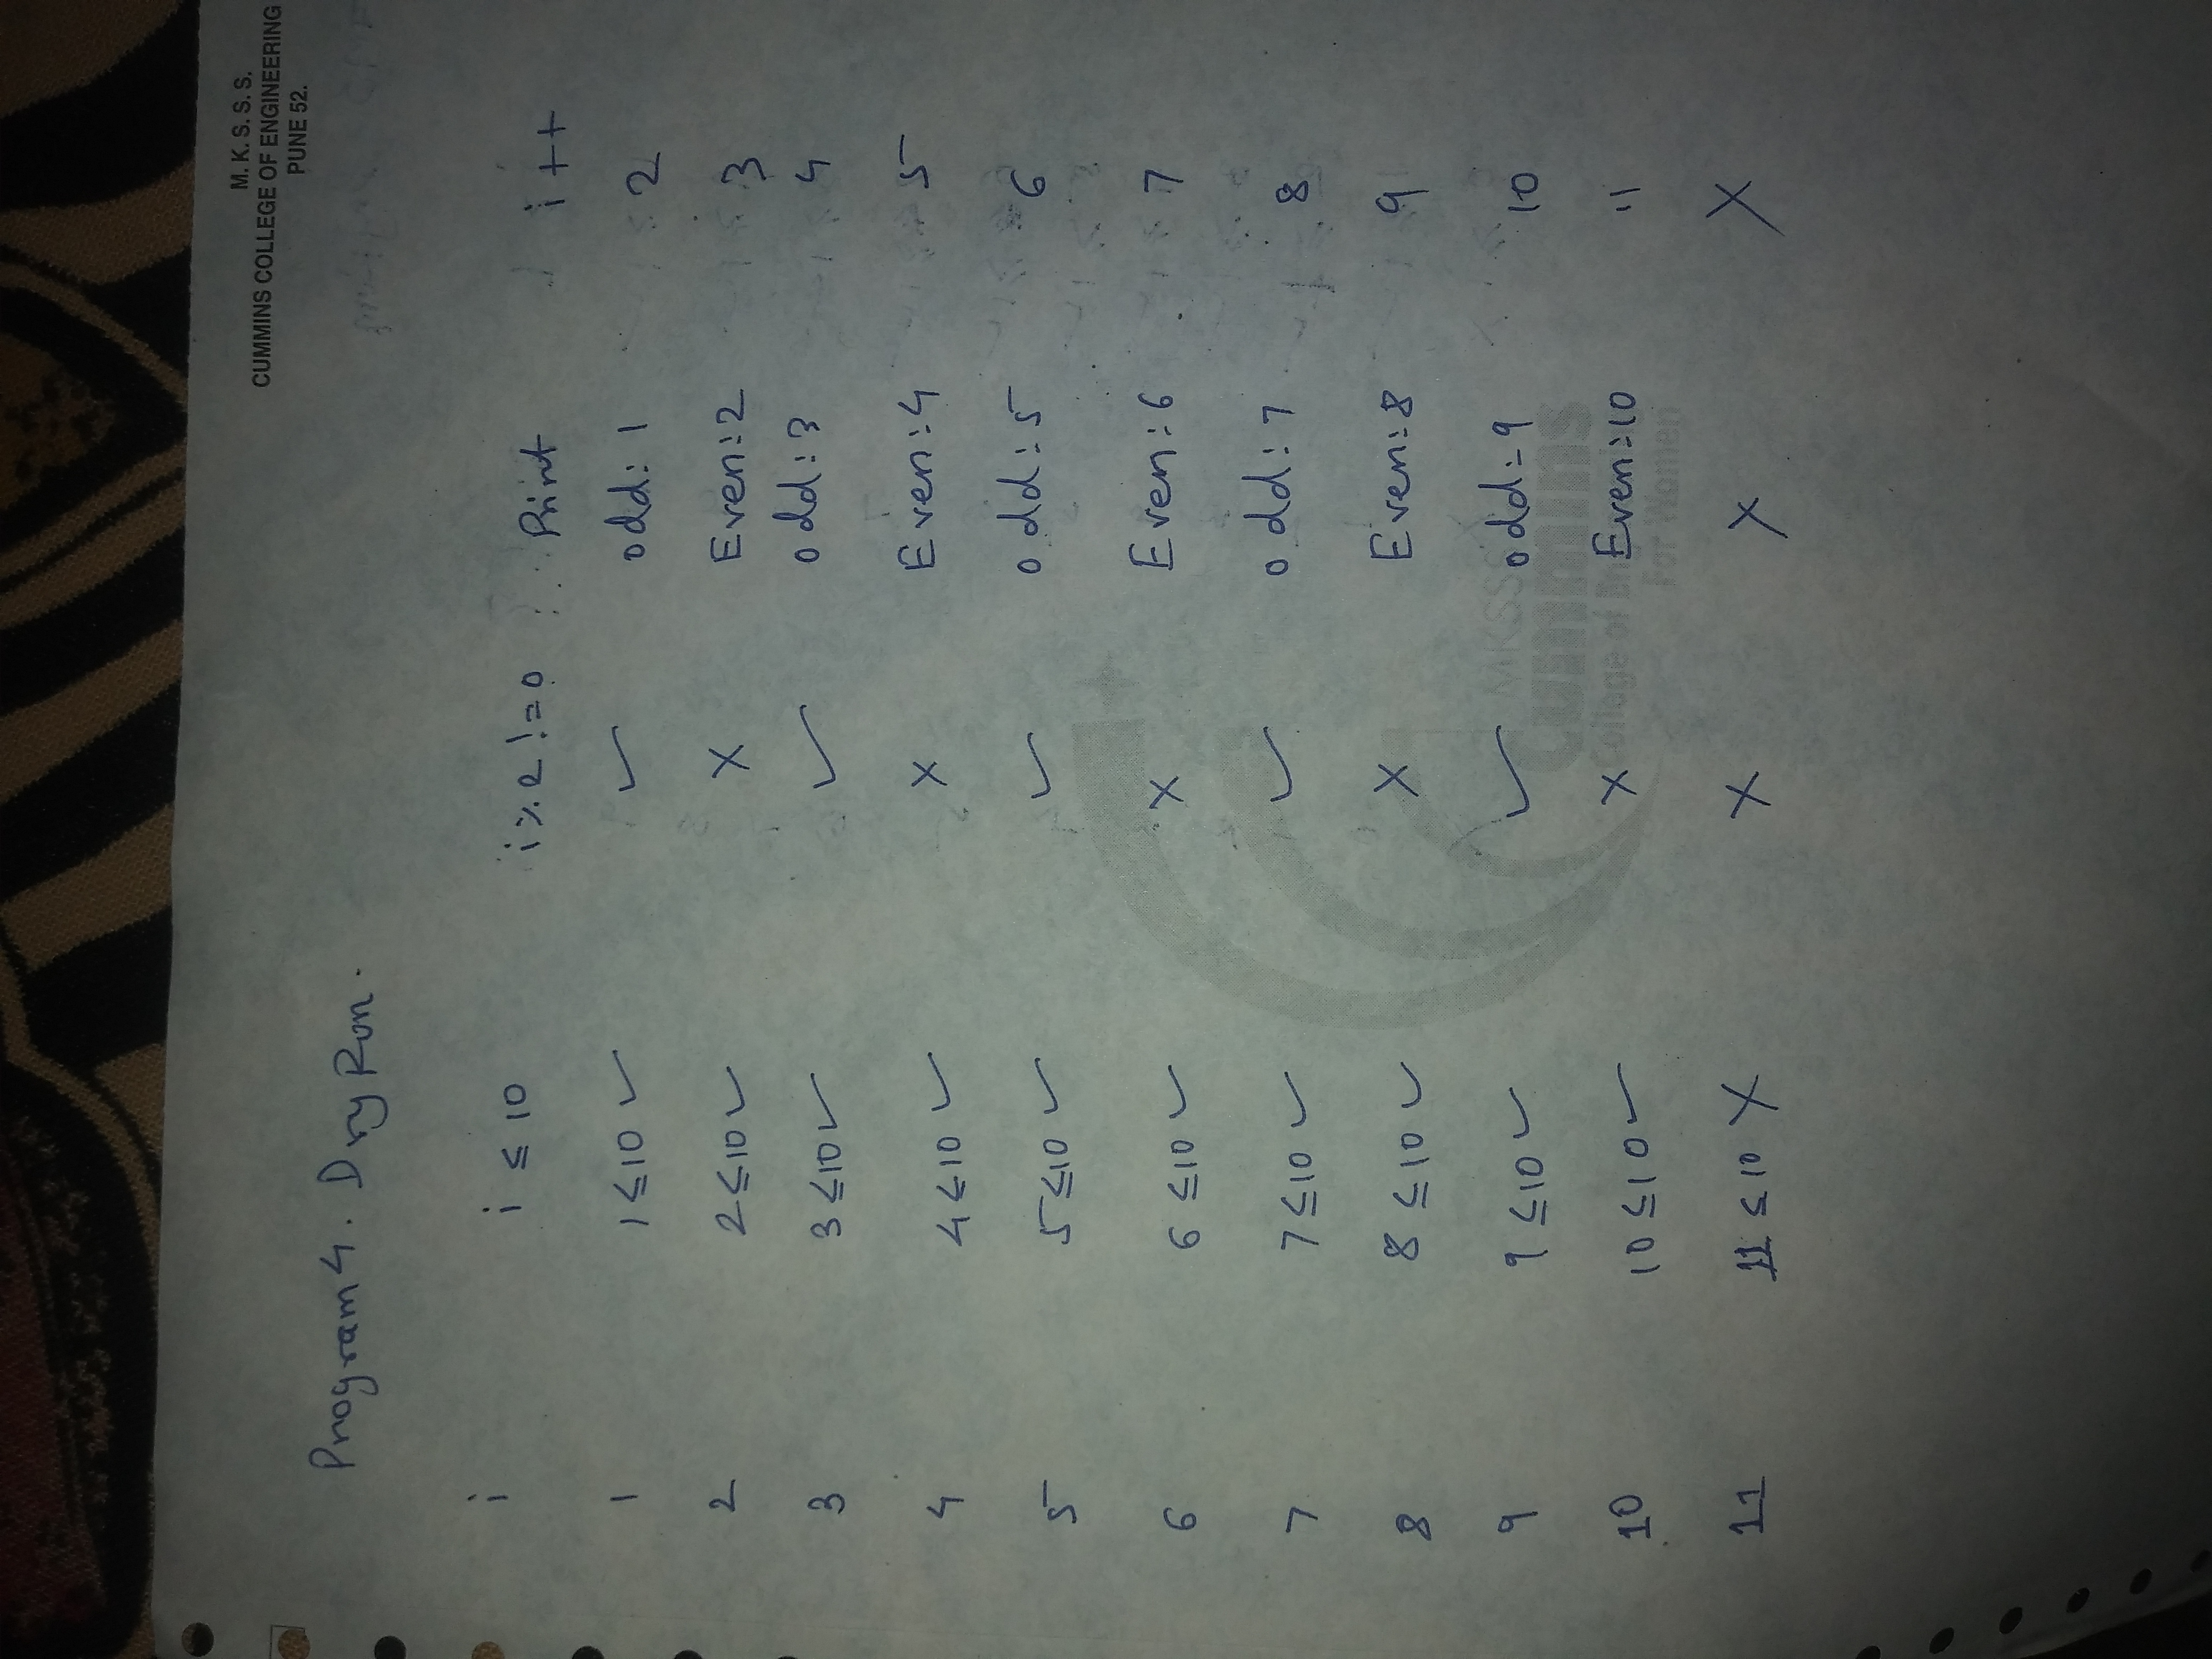 M. K. S. S. S.
CUMMINS COLLEGE OF ENGINEERING
PUNE 52.
Program 4. Dry Run.
i i ≤ 10 i%2 != 0 Print i++
1 1≤10 ✓ ✓ odd: 1 2
2 2≤10 ✓ X Even:2 3
3 3≤10 ✓ ✓ odd:3 4
4 4≤10 ✓ X Even:4 5
5 5≤10 ✓ ✓ odd:5 6
6 6≤10 ✓ X Even:6 7
7 7≤10 ✓ ✓ odd:7 8
8 8≤10 ✓ X Even:8 9
9 9≤10 ✓ ✓ odd:9 10
10 10≤10 ✓ X Even:10 11
11 11≤10 X X X X
MKSSS
Cummins
College of
For Women